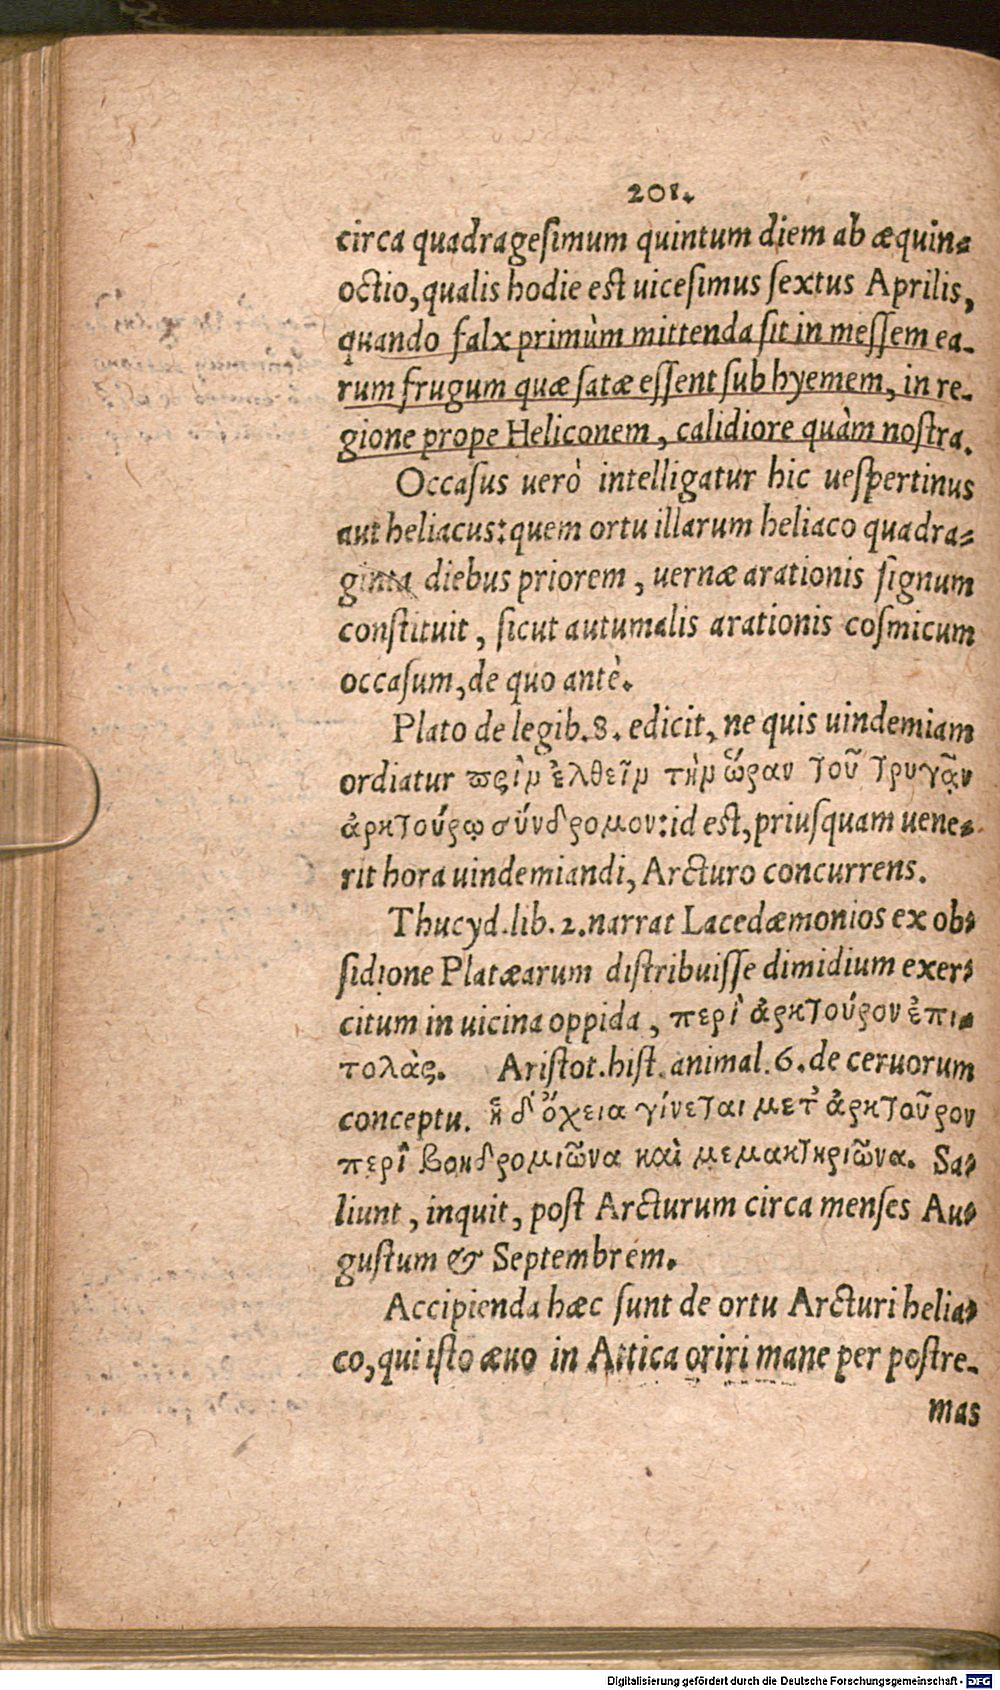 201.
circa quadragesimum quintum diem ab æquin-
octio, qualis hodie est uicesimus sextus Aprilis,
quando falx primùm mittenda sit in messem ea-
rum frugum quæ satæ essent sub hyemem, in re-
gione prope Heliconem, calidiore quàm nostra.
Occasus uerò intelligatur hic uespertinus
aut heliacus: quem ortu illarum heliaco quadra-
ginta diebus priorem, uernæ arationis signum
constituit, sicut autumalis arationis cosmicum
occasum, de quo antè.
Plato de legib. 8. edicit, ne quis uindemiam
ordiatur πρὶν ἐλθεῖν τὴν ὥραν τοῦ τρυγᾷν
ἀρκτούρῳ σύνδρομον: id est, priusquam uene-
rit hora uindemiandi, Arcturo concurrens.
Thucyd. lib. 2. narrat Lacedæmonios ex ob-
sidione Platæarum distribuisse dimidium exer-
citum in uicina oppida, περὶ ἀρκτούρον ἐπι-
τολὰς. Aristot. hist. animal. 6. de ceruorum
conceptu. ἥ δ' ὄχεια γίνεται μετ' ἀρκτοῦρον
περὶ βοηδρομιῶνα καὶ μεμακτηριῶνα. Sa-
liunt, inquit, post Arcturum circa menses Au-
gustum & Septembrem.
Accipienda hæc sunt de ortu Arcturi helia-
co, qui isto æuo in Attica oriri mane per postre-
mas
Digitalisierung gefördert durch die Deutsche Forschungsgemeinschaft - DFG